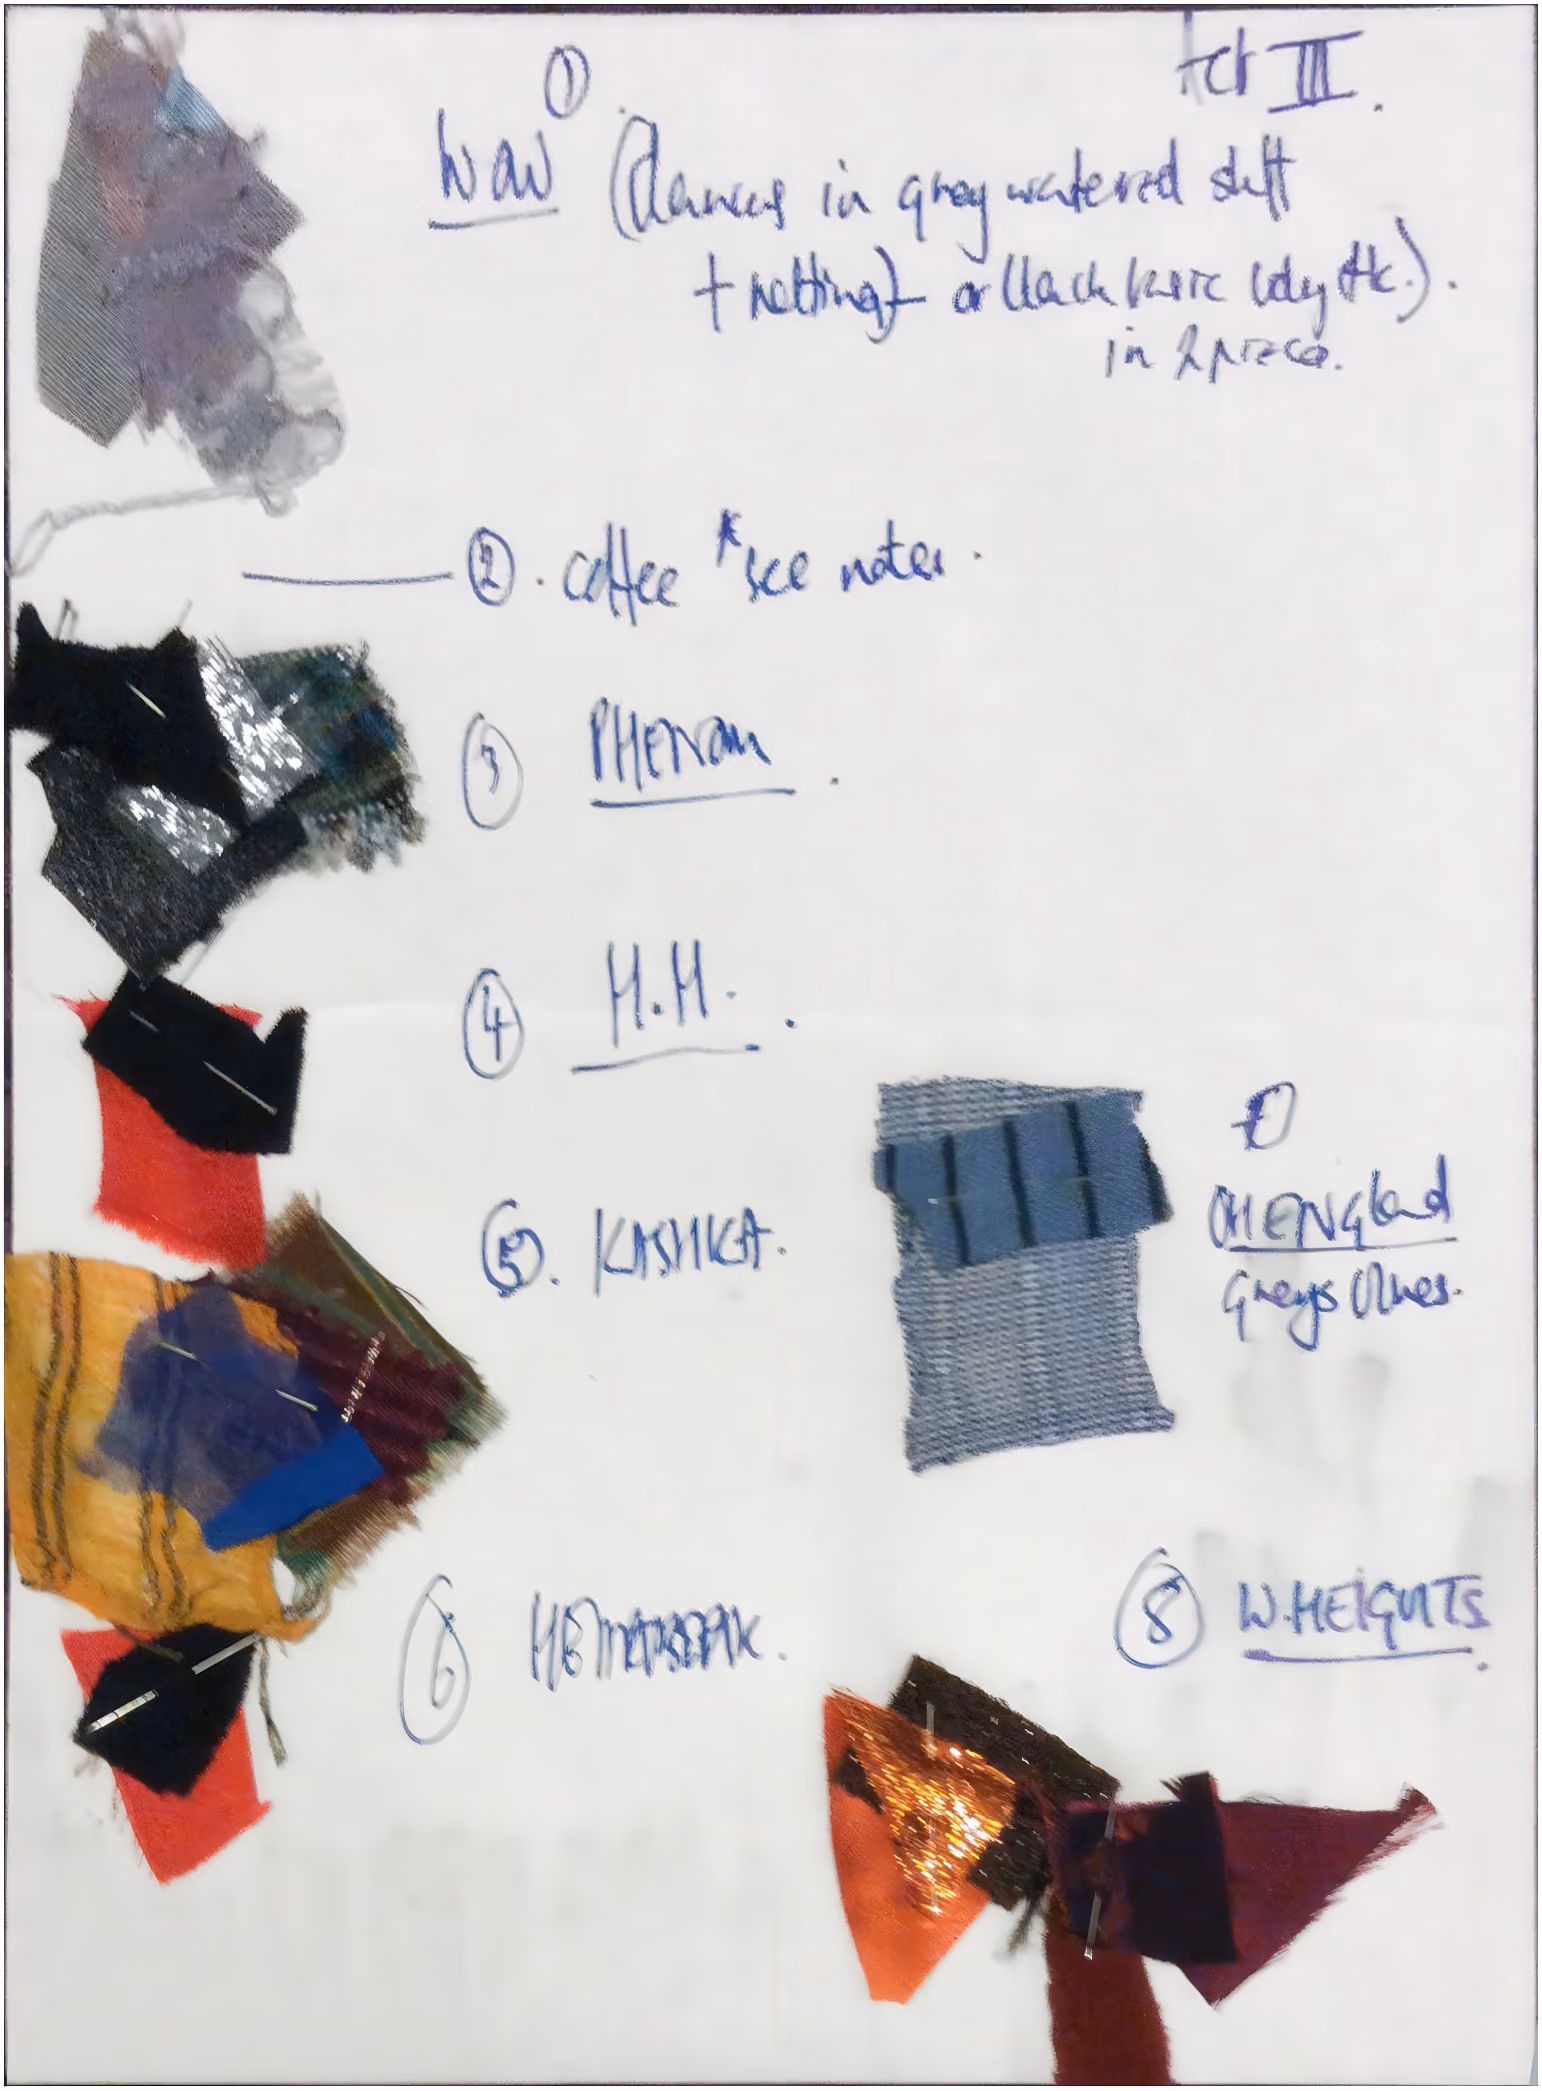 Act III.
①.
WOW (Dancers in grey watered silk
+ netting) or black basic body etc.).
in 2 pieces.
②. coffee * see notes.
③ PHENOM.
④ H.H.
⑤. KASHKA.
OH ENGland
Greys Blues.
⑥
⑧ W.HEIGHTS.